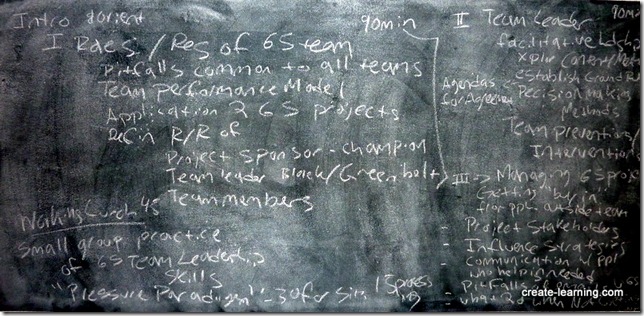 Intro & orient
90min
I Roles / Res of 6S team
Pitfalls common to all teams
Team Performance Model
Application 2 6S projects
Defin R/R of
Project Sponsor - champion
Team leader Black/Green belt
Team members
Working Lunch 45
Small group practice
of 6S Team Leadership
Skills
"Pressure Paradigm" - 30 for sim 15 process
II Team Leader
90min
facilitative
establish Ground
Agendas
for Agreement
Decision making
Methods
Team prevention/
Intervention
III -> Managing 6S proje
Getting buy in
from ppl outside team
- Project Stakeholders
- Influence Strategies
- Communication w/ ppl
who help is needed
- Pitfalls of
- what 2 do when
create-learning.com